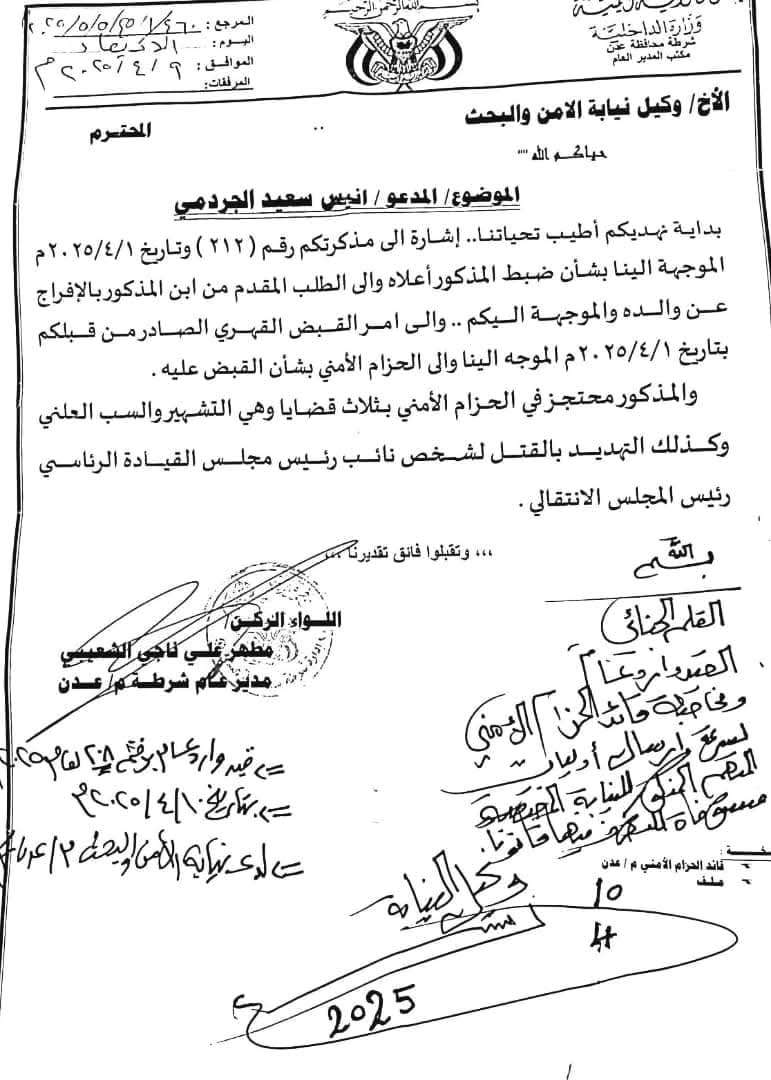 بسم الله الرحمن الرحيم
وزارة الداخلية
شرطة محافظة عدن
مكتب المدير العام
المرجع:
اليوم:
الموافق: ٢٠٢٥/٤/٩م
المرفقات:
الأخ/ وكيل نيابة الامن والبحث
المحترم
حياكم الله ""
الموضوع/ المدعو/ انيس سعيد الجردمي
بداية نهديكم أطيب تحياتنا.. إشارة الى مذكرتكم رقم (٢١٢) وتاريخ ٢٠٢٥/٤/١م
الموجهة الينا بشأن ضبط المذكور أعلاه والى الطلب المقدم من ابن المذكور بالإفراج
عن والده والموجهة اليكم .. والى امر القبض القهري الصادر من قبلكم
بتاريخ ٢٠٢٥/٤/١م الموجه الينا والى الحزام الأمني بشأن القبض عليه .
والمذكور محتجز في الحزام الأمني بثلاث قضايا وهي التشهير والسب العلني
وكذلك التهديد بالقتل لشخص نائب رئيس مجلس القيادة الرئاسي
رئيس المجلس الانتقالي .
،،، وتقبلوا فائق تقديرنا ،،،
اللواء الركن/
مطهر علي ناجي الشعيبي
مدير عام شرطة م/ عدن
بسم الله
القلم الجنائي
وارد عام
ومخاطبة قائد الحزام الأمني
لسرعة إرسال أوليات
المتهم المذكور للنيابة المختصة
للتصرف فيها قانونا
وكيل النيابة
10
4
2025
قيد وارد عام برقم ٢٠٨ لعام ٢٠٢٥م
بتاريخ ٢٠٢٥/٤/١٠م
لدى نيابة الأمن والبحث م/عدن
قائد الحزام الأمني م/ عدن
ملف